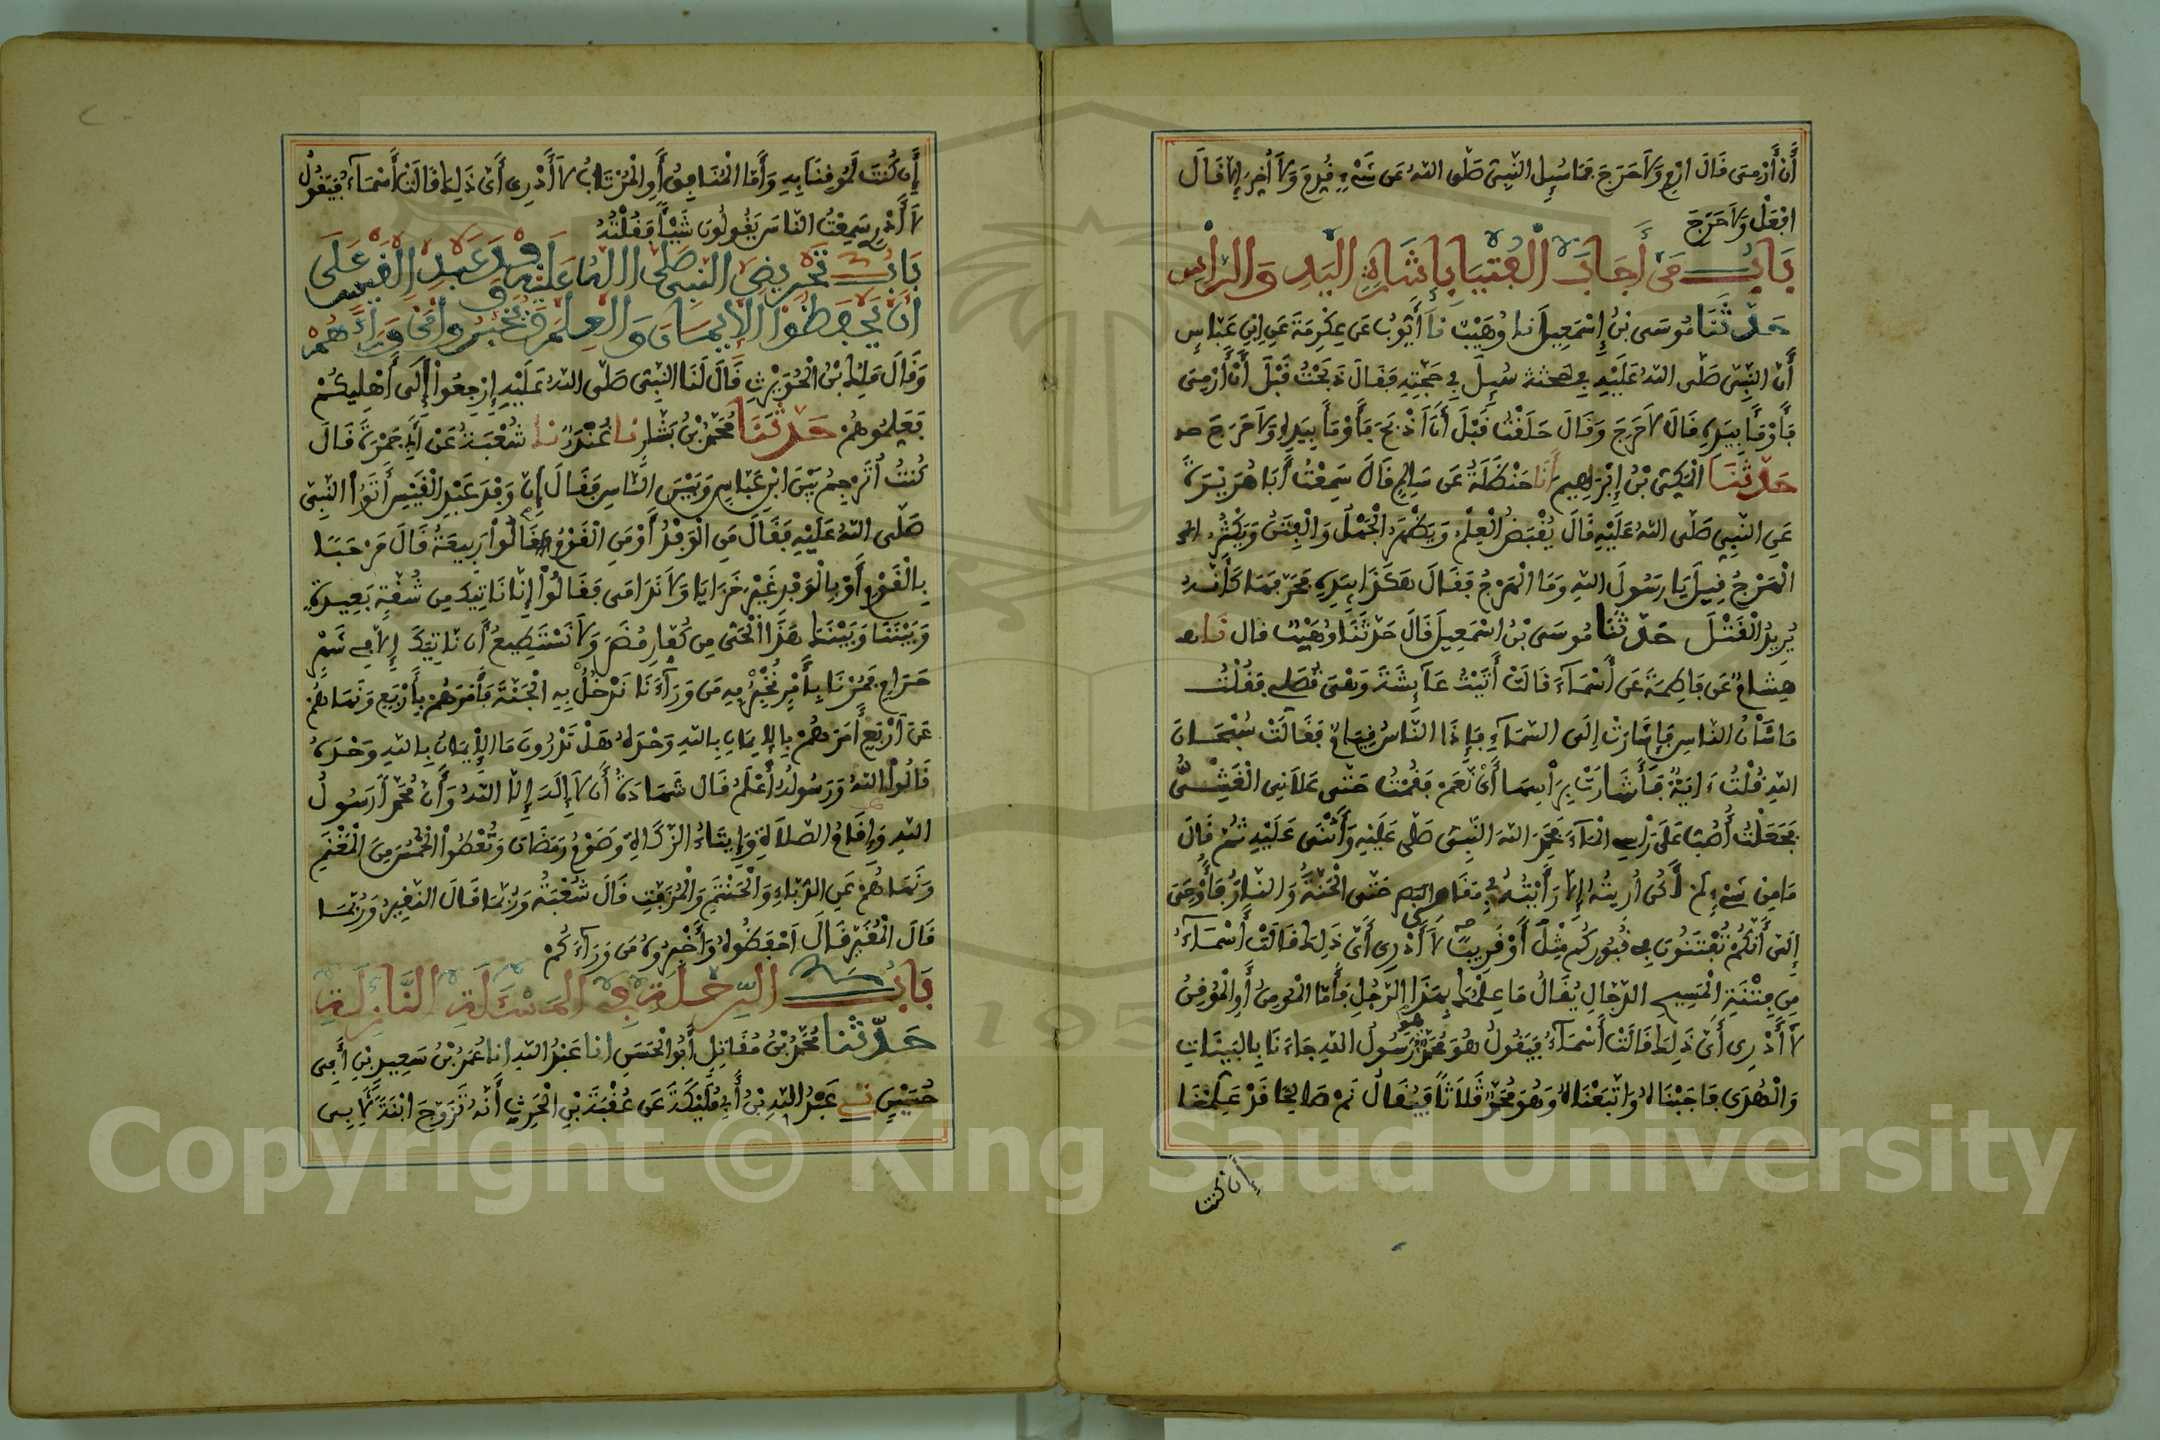 أَنْ أَرْمِيَ قَالَ ارْمِ وَلَا حَرَجَ فَمَا سُئِلَ النَّبِيُّ صَلَّى اللهُ عَن شَيْءٍ قُدِّمَ وَلَا أُخِّرَ إِلَّا قَالَ
افْعَلْ وَلَا حَرَجَ
بَابُ مَنْ أَجَابَ الْفُتْيَا بِإِشَارَةِ الْيَدِ وَالرَّأْسِ
حَدَّثَنَا مُوسَى بْنُ إِسْمَعِيلَ انا وُهَيْبٌ نَا أَيُّوبُ عَن عِكْرِمَةَ عَنِ ابْنِ عَبَّاسٍ
أَنَّ النَّبِيَّ صَلَّى اللهُ عَلَيْهِ سُئِلَ فِي حَجَّتِهِ فَقَالَ ذَبَحْتُ قَبْلَ أَنْ أَرْمِيَ
فَأَوْمَأَ بِيَدِهِ قَالَ لَا حَرَجَ وَقَالَ حَلَقْتُ قَبْلَ أَنْ أَذْبَحَ فَأَوْمَأَ بِيَدِهِ وَلَا حَرَجَ
حَدَّثَنَا الْمَكِّيُّ بْنُ إِبْرَاهِيمَ أَنَا حَنْظَلَةُ عَن سَالِمٍ قَالَ سَمِعْتُ أَبَا هُرَيْرَةَ
عَنِ النَّبِيِّ صَلَّى اللهُ عَلَيْهِ قَالَ يُقْبَضُ الْعِلْمُ وَيَظْهَرُ الْجَهْلُ وَالْفِتَنُ وَيَكْثُرُ
الْهَرْجُ قِيلَ يَا رَسُولَ اللهِ وَمَا الْهَرْجُ فَقَالَ هَكَذَا بِيَدِهِ فَحَرَّفَهَا كَأَنَّهُ
يُرِيدُ الْقَتْلَ حَدَّثَنَا مُوسَى بْنُ اسْمَعِيلَ قَالَ حَدَّثَنَا وُهَيْبٌ قال نَا
هِشَامٌ عَن فَاطِمَةَ عَن أَسْمَاءَ قَالَتْ أَتَيْتُ عَائِشَةَ وَهْيَ تُصَلِّي فَقُلْتُ
مَا شَأْنُ النَّاسِ فَأَشَارَتْ إِلَى السَّمَاءِ فَإِذَا النَّاسُ قِيَامٌ فَقَالَتْ سُبْحَانَ
اللهِ قُلْتُ ءَايَةٌ فَأَشَارَتْ بِرَأْسِهَا أَيْ نَعَمْ فَقُمْتُ حَتَّى عَلَانِي الْغَشْيُ
فَجَعَلْتُ أَصُبُّ عَلَى رَأْسِي الْمَاءَ فَحَمِدَ اللهَ النَّبِيُّ صَلَّى عَلَيْهِ وَأَثْنَى عَلَيْهِ ثُمَّ قَالَ
مَا مِن شَيْءٍ لَمْ أَكُن أُرِيتُهُ إِلَّا رَأَيْتُهُ فِي مَقَامِي حَتَّى الْجَنَّةُ وَالنَّارُ فَأُوحِيَ
إِلَيَّ أَنَّكُمْ تُفْتَنُونَ فِي قُبُورِكُم مِثْلَ أَوْ قَرِيبًا لَا أَدْرِي أَيَّ ذَلِكَ قَالَتْ أَسْمَاءُ
مِن فِتْنَةِ الْمَسِيحِ الدَّجَّالِ يُقَالُ مَا عِلْمُكَ بِهَذَا الرَّجُلِ فَأَمَّا الْمُومِنُ أَوِ الْمُوقِنُ
لَا أَدْرِي أَيَّ ذَلِكَ قَالَتْ أَسْمَاءُ فَيَقُولُ هُوَ مُحَمَّدٌ هو رَسُولُ اللهِ جَاءَنَا بِالْبَيِّنَاتِ
وَالْهُدَى فَأَجَبْنَاهُ وَاتَّبَعْنَاهُ وَهُوَ مُحَمَّدٌ ثَلَاثًا فَيُقَالُ نَمْ صَالِحًا قَدْ عَلِمْنَا
إِن كنت
إِن كُنتَ لَمُوقِنًا بِهِ وَأَمَّا الْمُنَافِقُ أَوِ الْمُرْتَابُ لَا أَدْرِي أَيَّ ذَلِكَ قَالَتْ أَسْمَاءُ فَيَقُولُ
لَا أَدْرِي سَمِعْتُ النَّاسَ يَقُولُونَ شَيْئًا فَقُلْتُهُ
بَابُ تَحْرِيضِ النَّبِيِّ صَلَّى اللهُ عَلَيْهِ وَفْدَ عَبْدِ الْقَيْسِ عَلَى
أَنْ يَحْفَظُوا الْإِيمَانَ وَالْعِلْمَ وَيُخْبِرُوا مَنْ وَرَاءَهُمْ
وَقَالَ مَلِكُ بْنُ الْحُوَيْرِثِ قَالَ لَنَا النَّبِيُّ صَلَّى اللهُ عَلَيْهِ ارْجِعُوا إِلَى أَهْلِيكُمْ
فَعَلِّمُوهُمْ حَدَّثَنَا مُحَمَّدُ بْنُ بَشَّارٍ نا غُنْدَرٌ نا شُعْبَةُ عَنْ أَبِي جَمْرَةَ قَالَ
كُنتُ أُتَرْجِمُ بَيْنَ ابْنِ عَبَّاسٍ وَبَيْنَ النَّاسِ فَقَالَ إِنَّ وَفْدَ عَبْدِ الْقَيْسِ أَتَوُا النَّبِيَّ
صَلَّى اللهُ عَلَيْهِ فَقَالَ مَنِ الْوَفْدُ أَوْ مَنِ الْقَوْمُ قَالُوا رَبِيعَةُ قَالَ مَرْحَبًا
بِالْقَوْمِ أَوْ بِالْوَفْدِ غَيْرَ خَزَايَا وَلَا نَدَامَى فَقَالُوا إِنَّا نَاتِيكَ مِن شُقَّةٍ بَعِيدَةٍ
وَبَيْنَنَا وَبَيْنَكَ هَذَا الْحَيُّ مِن كُفَّارِ مُضَرَ وَلَا نَسْتَطِيعُ أَن نَاتِيَكَ إِلَّا فِي شَهْرٍ
حَرَامٍ فَمُرْنَا بِأَمْرٍ نُخْبِرُ بِهِ مَن وَرَاءَنَا نَدْخُلُ بِهِ الْجَنَّةَ فَأَمَرَهُمْ بِأَرْبَعٍ وَنَهَاهُمْ
عَنْ أَرْبَعٍ أَمَرَهُمْ بِالْإِيمَانِ بِاللهِ وَحْدَهُ هَلْ تَدْرُونَ مَا الْإِيمَانُ بِاللهِ وَحْدَهُ
قَالُوا اللهُ وَرَسُولُهُ أَعْلَمُ قَالَ شَهَادَةُ أَن لَا إِلَهَ إِلَّا اللهُ وَأَنَّ مُحَمَّدًا رَسُولُ
اللهِ وَإِقَامُ الصَّلَاةِ وَإِيتَاءُ الزَّكَاةِ وَصَوْمُ رَمَضَانَ وَتُعْطُوا الْخُمُسَ مِنَ الْمَغْنَمِ
وَنَهَاهُمْ عَنِ الدُّبَّاءِ وَالْحَنْتَمِ وَالْمُزَفَّتِ قَالَ شُعْبَةُ وَرُبَّمَا قَالَ النَّقِيرِ وَرُبَّمَا
قَالَ الْمُقَيَّرِ قَالَ احْفَظُوهُ وَأَخْبِرُوهُ مَن وَرَاءَكُمْ
بَابُ الرِّحْلَةِ فِي الْمَسْئَلَةِ النَّازِلَةِ
حَدَّثَنَا مُحَمَّدُ بْنُ مُقَاتِلٍ أَبُو الْحَسَنِ انا عَبْدُ اللهِ انا عُمَرُ بْنُ سَعِيدِ بْنِ أَبِي
حُسَيْنٍ عَبْدُ اللهِ بْنُ أَبِي مُلَيْكَةَ عَن عُقْبَةَ بْنِ الْحَرِثِ أَنَّهُ تَزَوَّجَ ابْنَةً لِأَبِي
Copyright © King Saud University
195